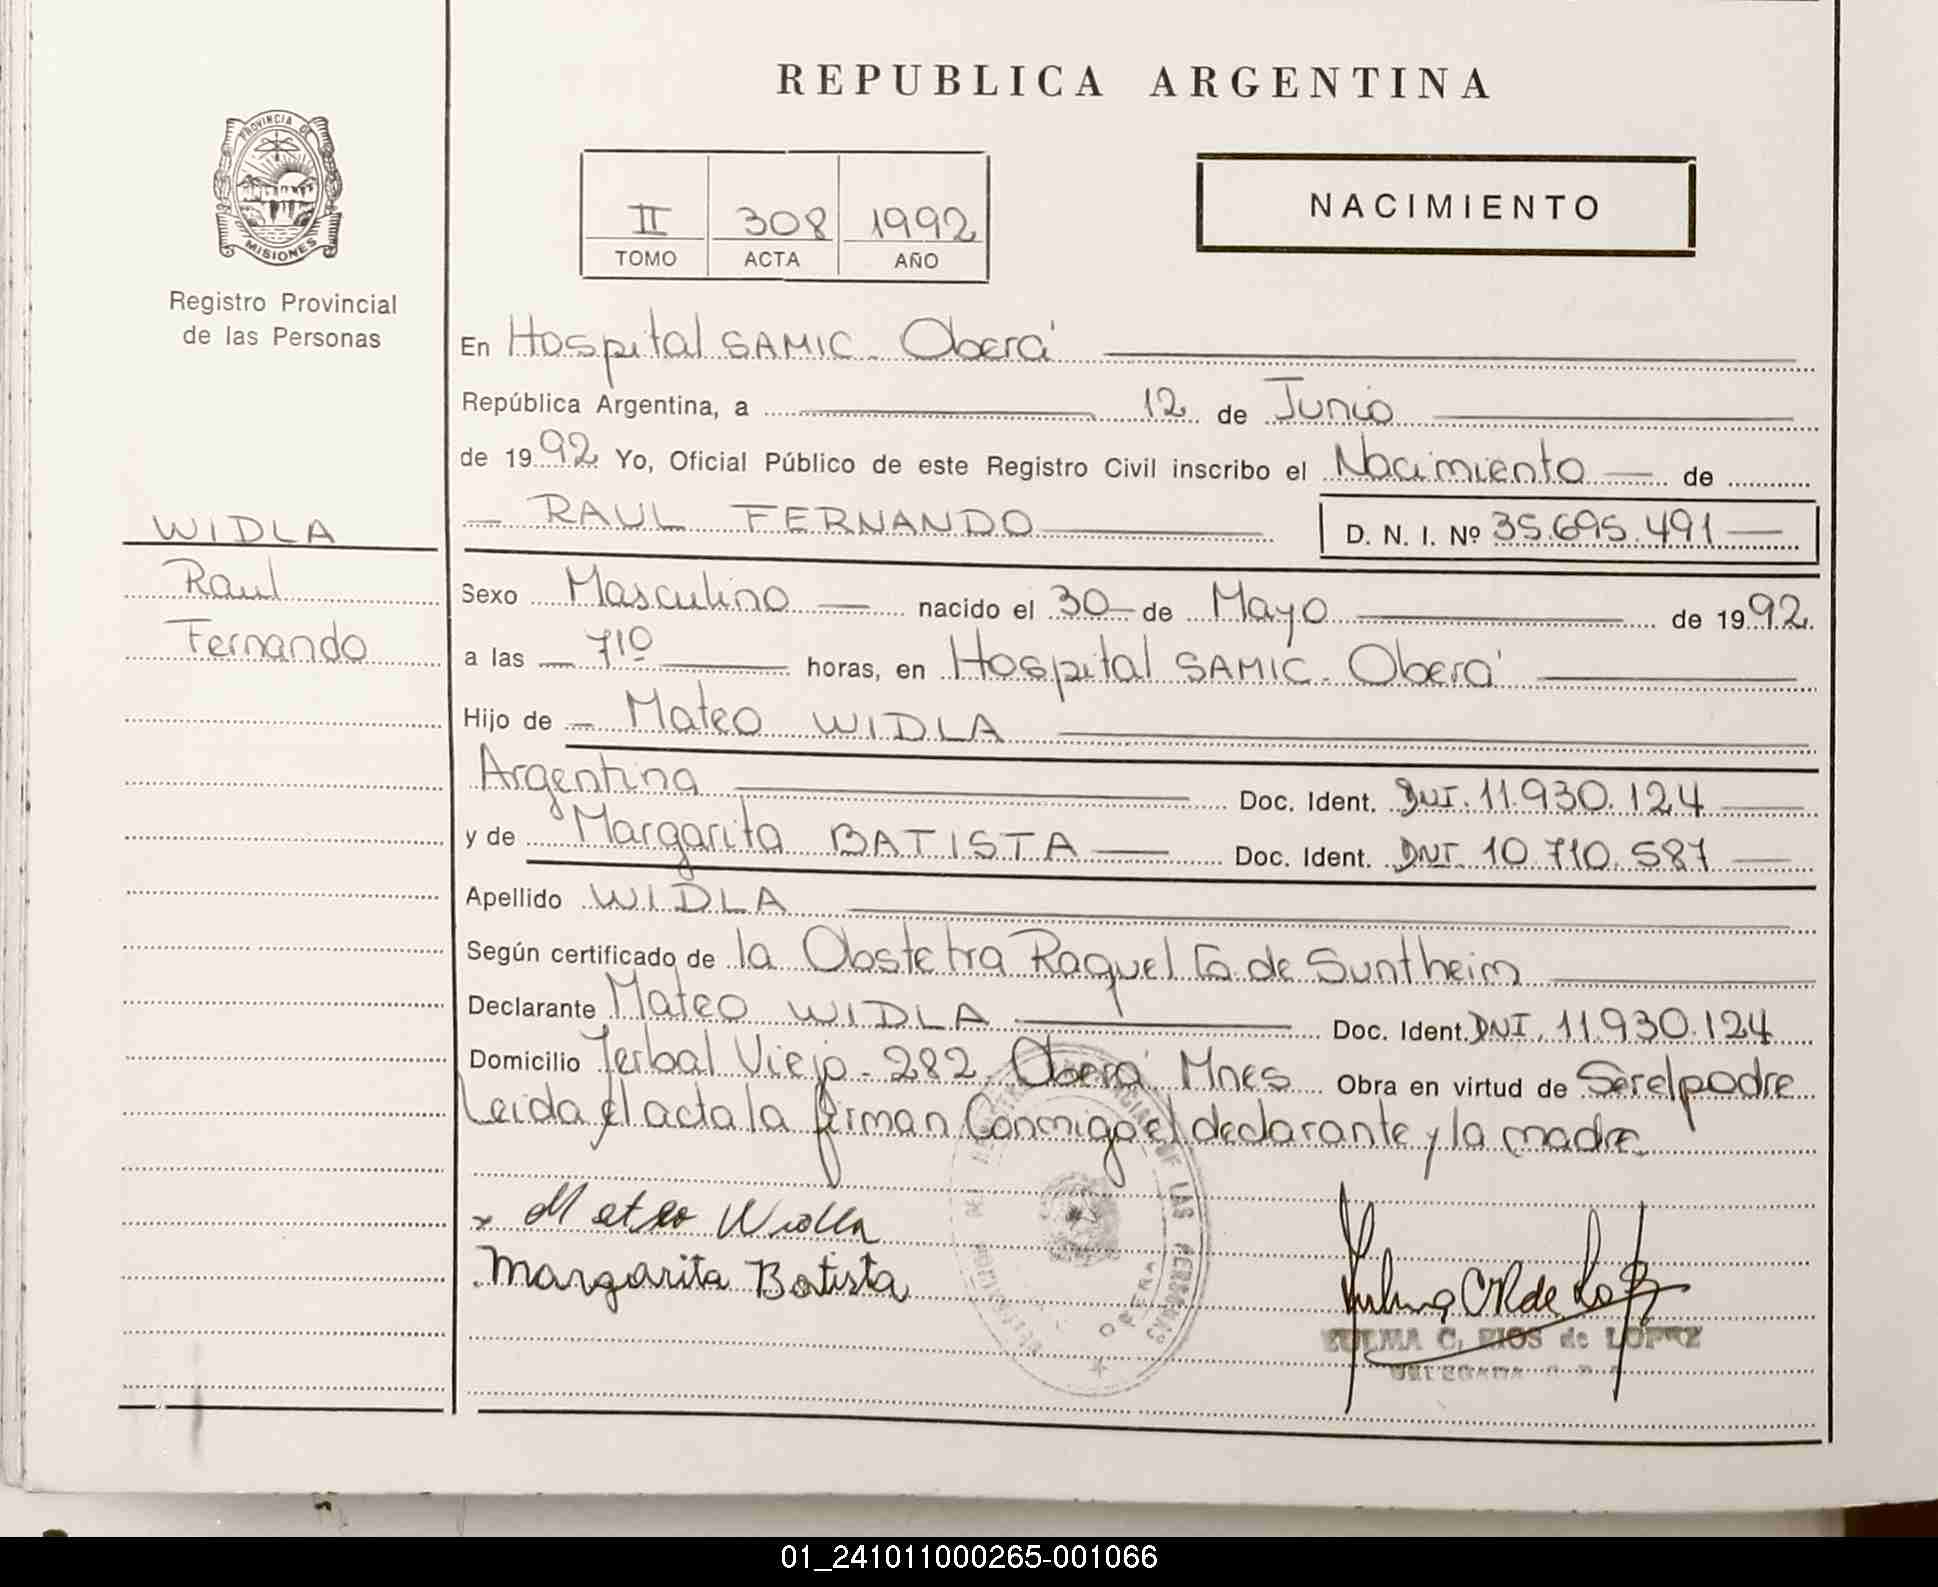 REPUBLICA ARGENTINA
PROVINCIA DE
MISIONES
Registro Provincial
de las Personas
II 308 1992
TOMO ACTA AÑO
NACIMIENTO
En Hospital SAMIC - Oberá
República Argentina, a 12 de Junio
de 1992 Yo, Oficial Público de este Registro Civil inscribo el Nacimiento de
RAUL FERNANDO D. N. I. Nº 35.695.491
WIDLA
Raul
Fernando
Sexo Masculino nacido el 30 de Mayo de 1992.
a las 710 horas, en Hospital SAMIC - Oberá
Hijo de Mateo WIDLA
Argentina Doc. Ident. DNI. 11.930.124
y de Margarita BATISTA Doc. Ident. DNI. 10.710.587
Apellido WIDLA
Según certificado de la Obstetra Raquel G. de Suntheim
Declarante Mateo WIDLA Doc. Ident. DNI. 11.930.124
Domicilio Yerbal Viejo - 282 Oberá Mnes Obra en virtud de Ser el padre
Leida el acta la firman Conmigo el declarante y la madre
x Mateo Widla
Margarita Batista
DE LAS PERSONAS
OBERA
ZULMA C. RIOS de LOPEZ
DELEGADA
01_241011000265-001066